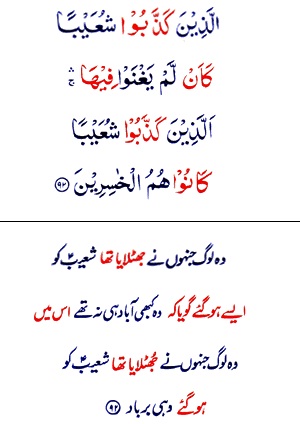 الَّذِيْنَ كَذَّبُوْا شُعَيْبًا
كَاَنْ لَّمْ يَغْنَوْا فِيْهَا ۛۚ
اَلَّذِيْنَ كَذَّبُوْا شُعَيْبًا
كَانُوْا هُمُ الْخٰسِرِيْنَ ۹۲
وہ لوگ جنہوں نے جھٹلایا تھا شعیبؑ کو
ایسے ہوگئے گویا کہ وہ کبھی آباد ہی نہ تھے اس میں
وہ لوگ جنہوں نے جُھٹلایا تھا شعیبؑ کو
ہوگئے وہی برباد ۹۲